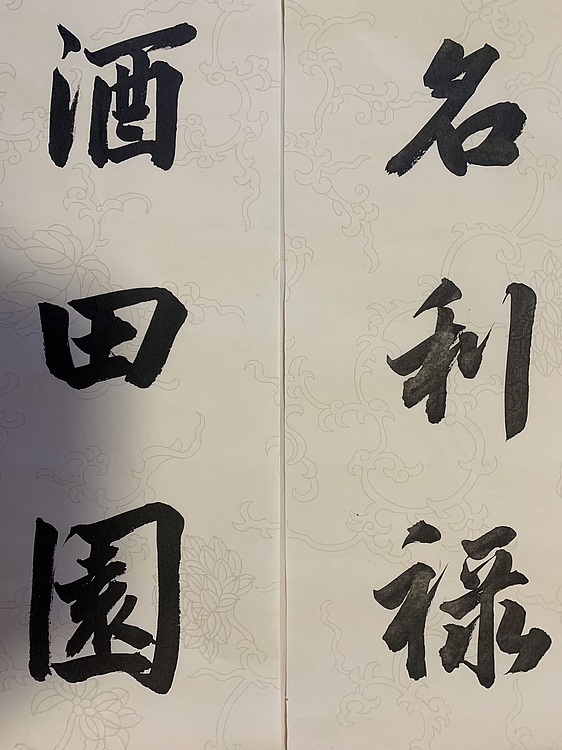 名利禄
酒田園